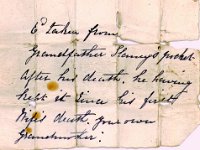 & taken from
Grandfather Stanney's pocket
After his death, he having
kept it since his first
Wife's death. your own
Grandmother.